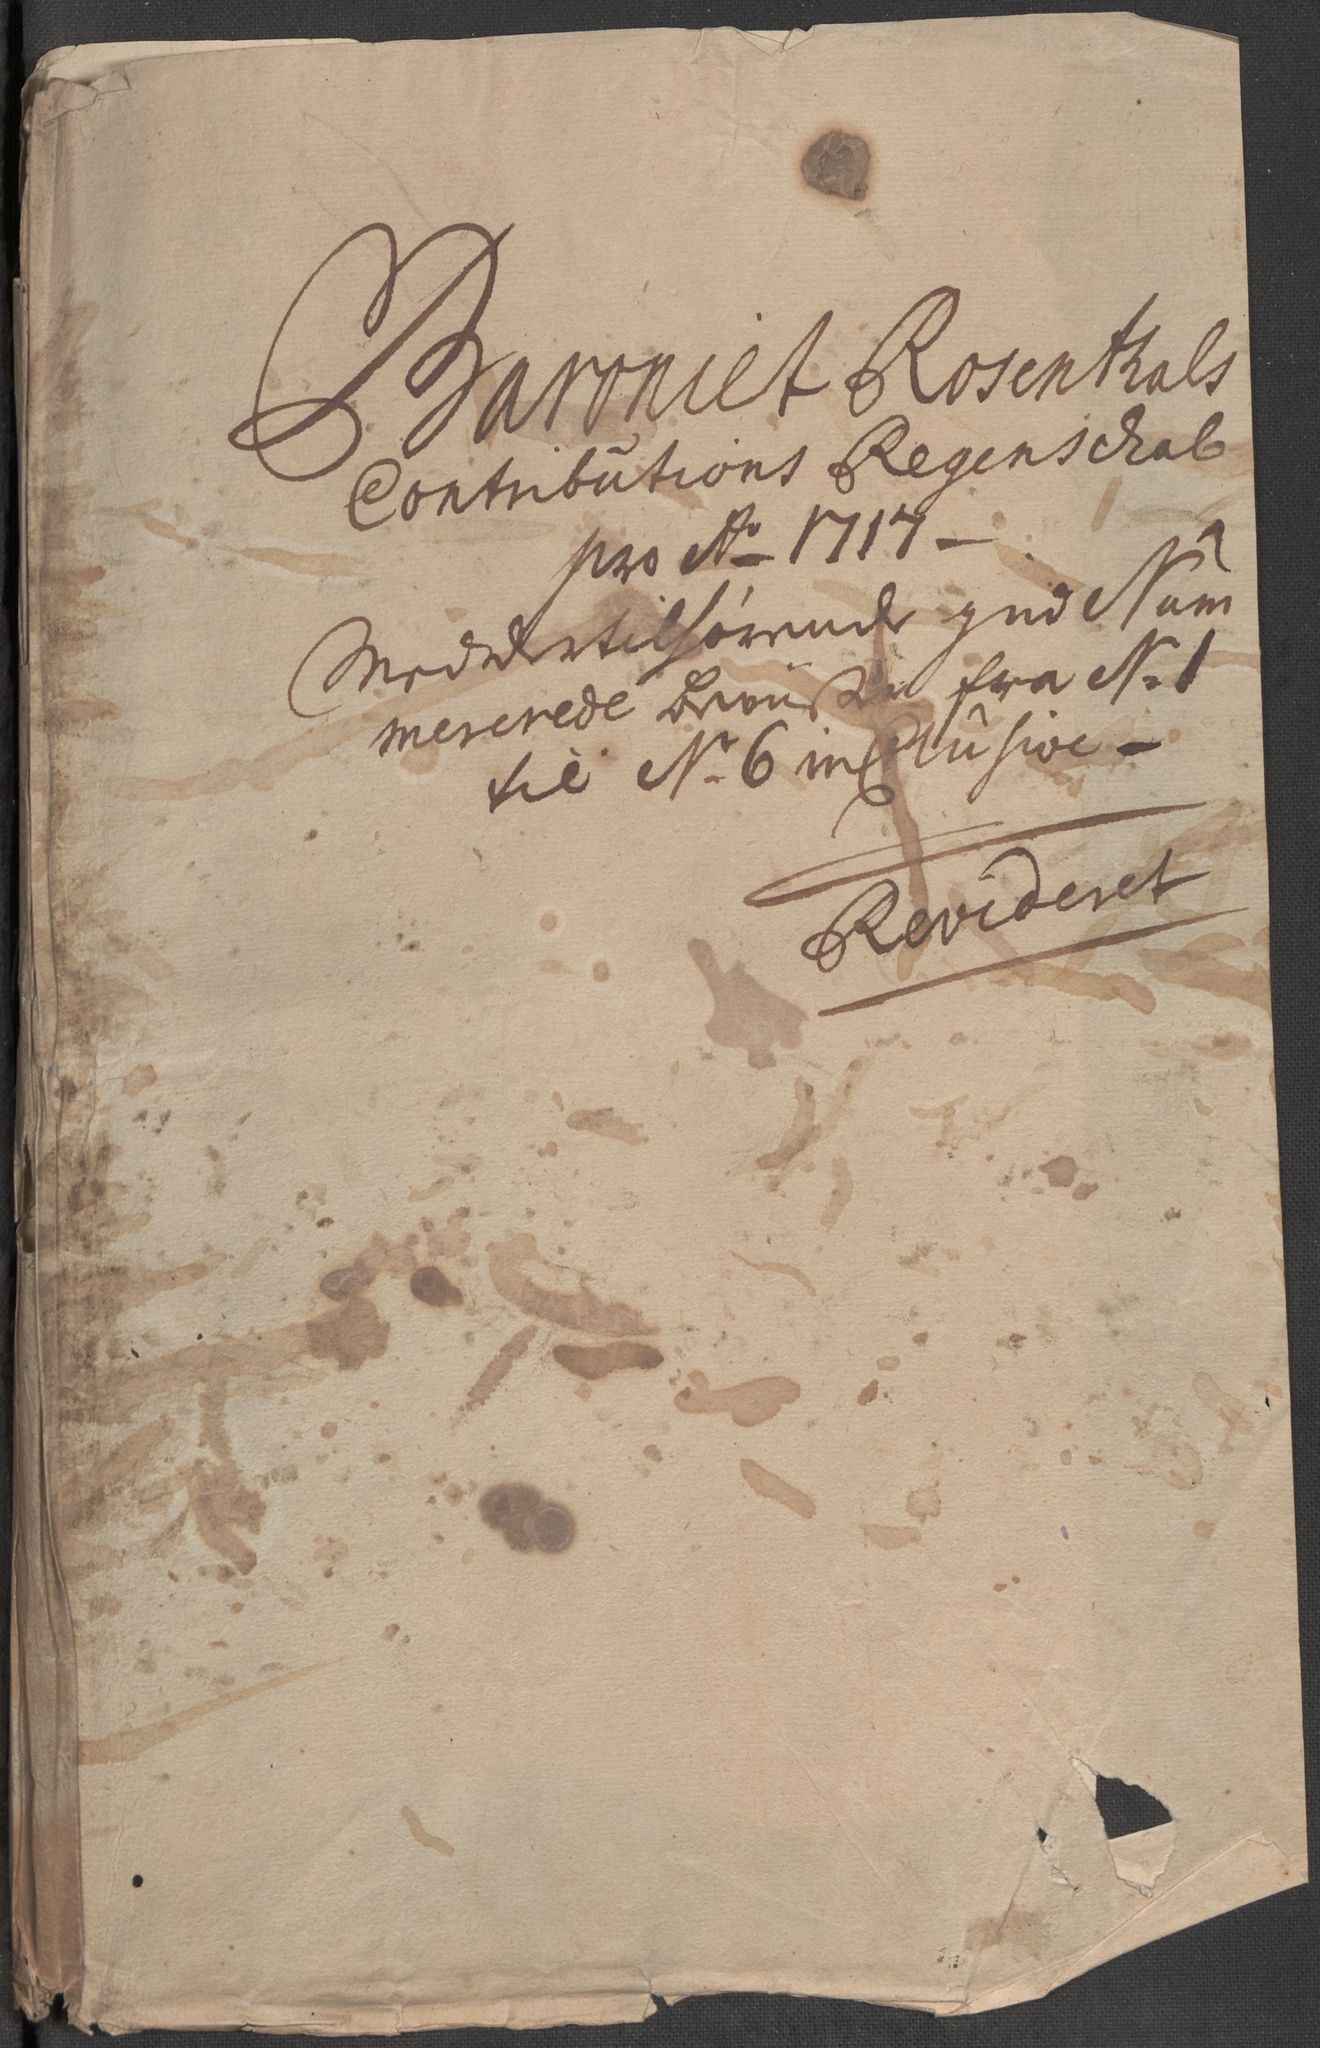 Baroniet Rosenthals
Contributions Regenschab
pro Ao 1717
Med dertilhörende Num
mererede beviiser fra No 1
til No 6 inclusive
Revideret